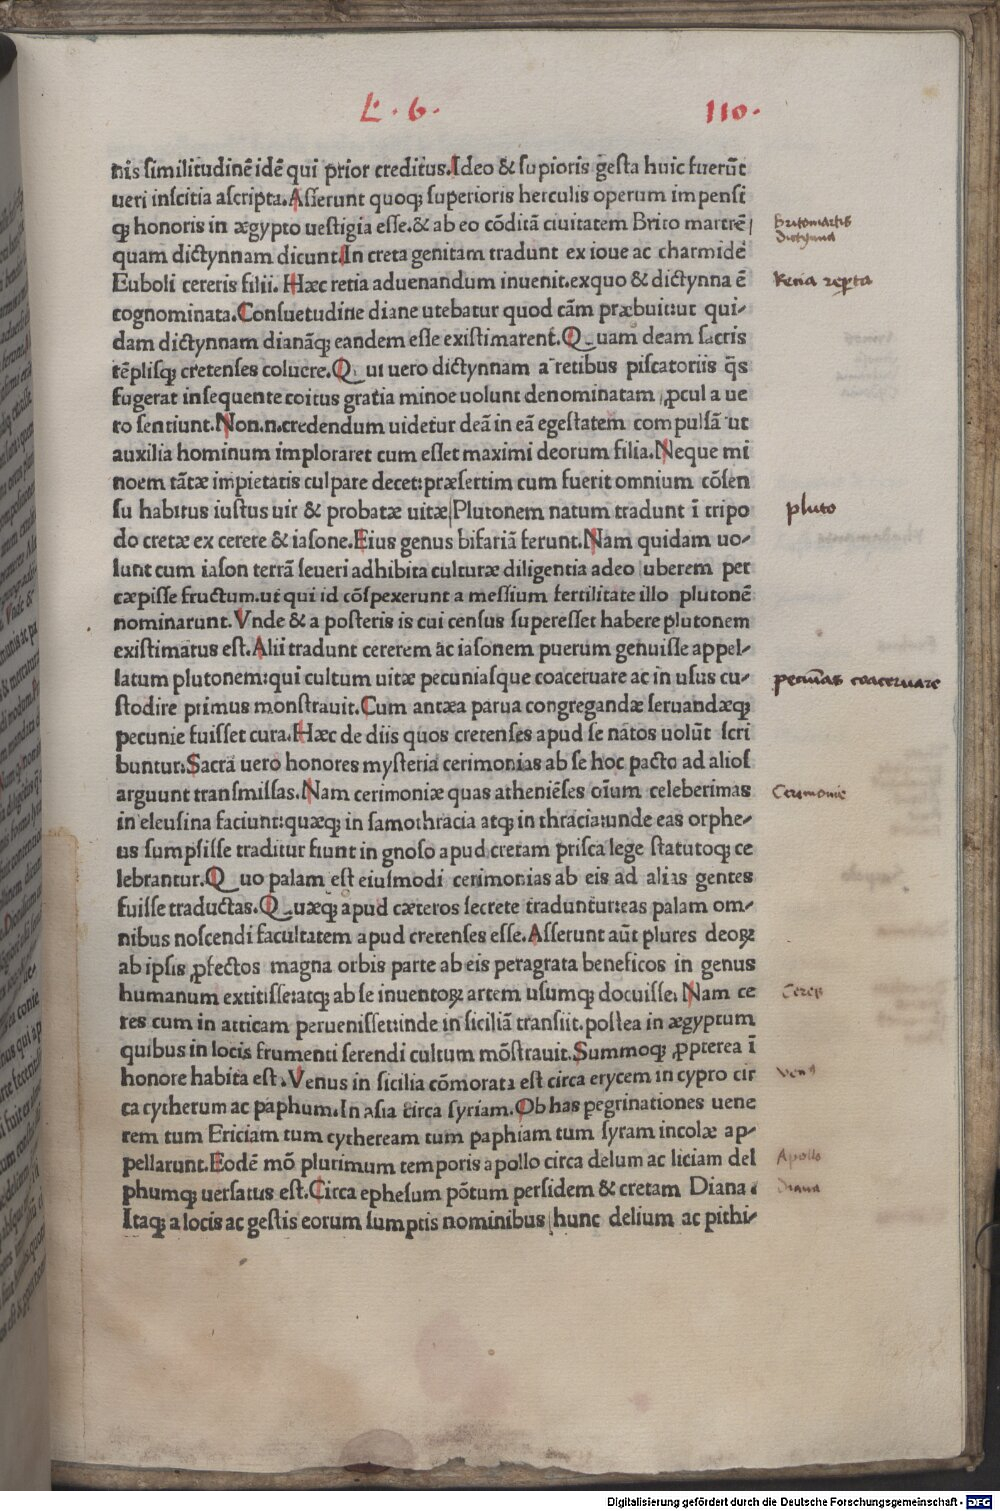 L. 6.
110.
nis similitudinē idē qui prior creditus. Ideo & supioris gesta huic fuerūt
ueri inscitia ascripta. Asserunt quoq; superioris herculis operum impensi
q; honoris in ægypto uestigia esse. & ab eo cōditā ciuitatem Brito martrē
quam dictynnam dicunt. In creta genitam tradunt ex ioue ac charmide
Euboli cereris filii. Hæc retia aduenandum inuenit. exquo & dictynna ē
cognominata. Consuetudine diane utebatur quod cām præbuit: ut qui-
dam dictynnam dianāq; eandem esse existimarent. Quam deam sacris
tēplisq; cretenses coluere. Qui uero dictynnam a retibus piscatoriis q̄s
fugerat insequente coitus gratia minoe uolunt denominatam ꝓcul a ue
ro sentiunt. Non.n. credendum uidetur deā in eā egestatem compulsā ut
auxilia hominum imploraret cum esset maximi deorum filia. Neque mi
noem tātæ impietatis culpare decet: præsertim cum fuerit omnium cōsen
su habitus iustus uir & probatæ uitæ Plutonem natum tradunt ī tripo
do cretæ ex cerere & iasone. Eius genus bifariā ferunt. Nam quidam uo-
lunt cum iason terrā seueri adhibita culturæ diligentia adeo uberem per
cæpisse fructum. ut qui id cōspexerunt a messium fertilitate illo plutonē
nominarunt. Vnde & a posteris is cui census superesset habere plutonem
existimatus est. Alii tradunt cererem ac iasonem puerum genuisse appel-
latum plutonem: qui cultum uitæ pecuniasque coaceruare ac in usus cu-
stodire primus monstrauit. Cum antæa parua congregandæ seruandæq;
pecunie fuisset cura. Hæc de diis quos cretenses apud se natos uolūt scri
buntur. Sacra uero honores mysteria cerimonias ab se hoc pacto ad alios
arguunt transmissas. Nam cerimoniæ quas atheniēses oīum celeberimas
in eleusina faciunt: quæq; in samothracia atq; in thracia: unde eas orphe-
us sumpsisse traditur fiunt in gnoso apud cretam prisca lege statutoq; ce
lebrantur. Quo palam est eiusmodi cerimonias ab eis ad alias gentes
fuisse traductas. Quæq; apud cæteros secrete traduntur: eas palam om-
nibus noscendi facultatem apud cretenses esse. Asserunt aūt plures deoꝝ
ab ipsis ꝓfectos magna orbis parte ab eis peragrata beneficos in genus
humanum extitisse: atq; ab se inuentoꝝ artem usumq; docuisse. Nam ce
res cum in atticam peruenisset: inde in siciliā transiit. postea in ægyptum
quibus in locis frumenti serendi cultum mōstrauit. Summoq; ꝓpterea ī
honore habita est. Venus in sicilia cōmorata est circa erycem in cypro cir
ca cytherum ac paphum. In asia circa syriam. Ob has pegrinationes uene
rem tum Ericiam tum cytheream tum paphiam tum syram incolæ ap-
pellarunt. Eodē mō plurimum temporis apollo circa delum ac liciam del
phumq; uersatus est. Circa ephesum pōtum persidem & cretam Diana.
Itaq; a locis ac gestis eorum sumptis nominibus hunc delium ac pithi-
Britomartis
Dictynna
Retia reperta
pluto
pecunias coaceruare
Cerimonie
Ceres
Venus
Apollo
Diana
Digitalisierung gefördert durch die Deutsche Forschungsgemeinschaft - DFG